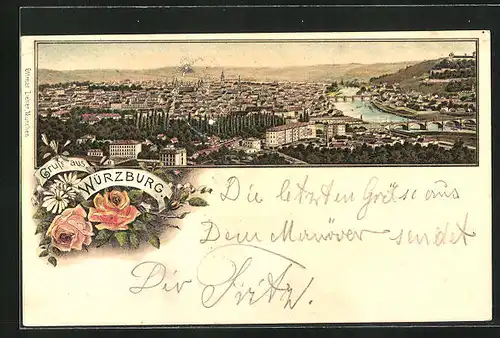 Gruß aus
WÜRZBURG
Die letzten Grüße aus
Dem Manöver sendet
Dir Fritz.